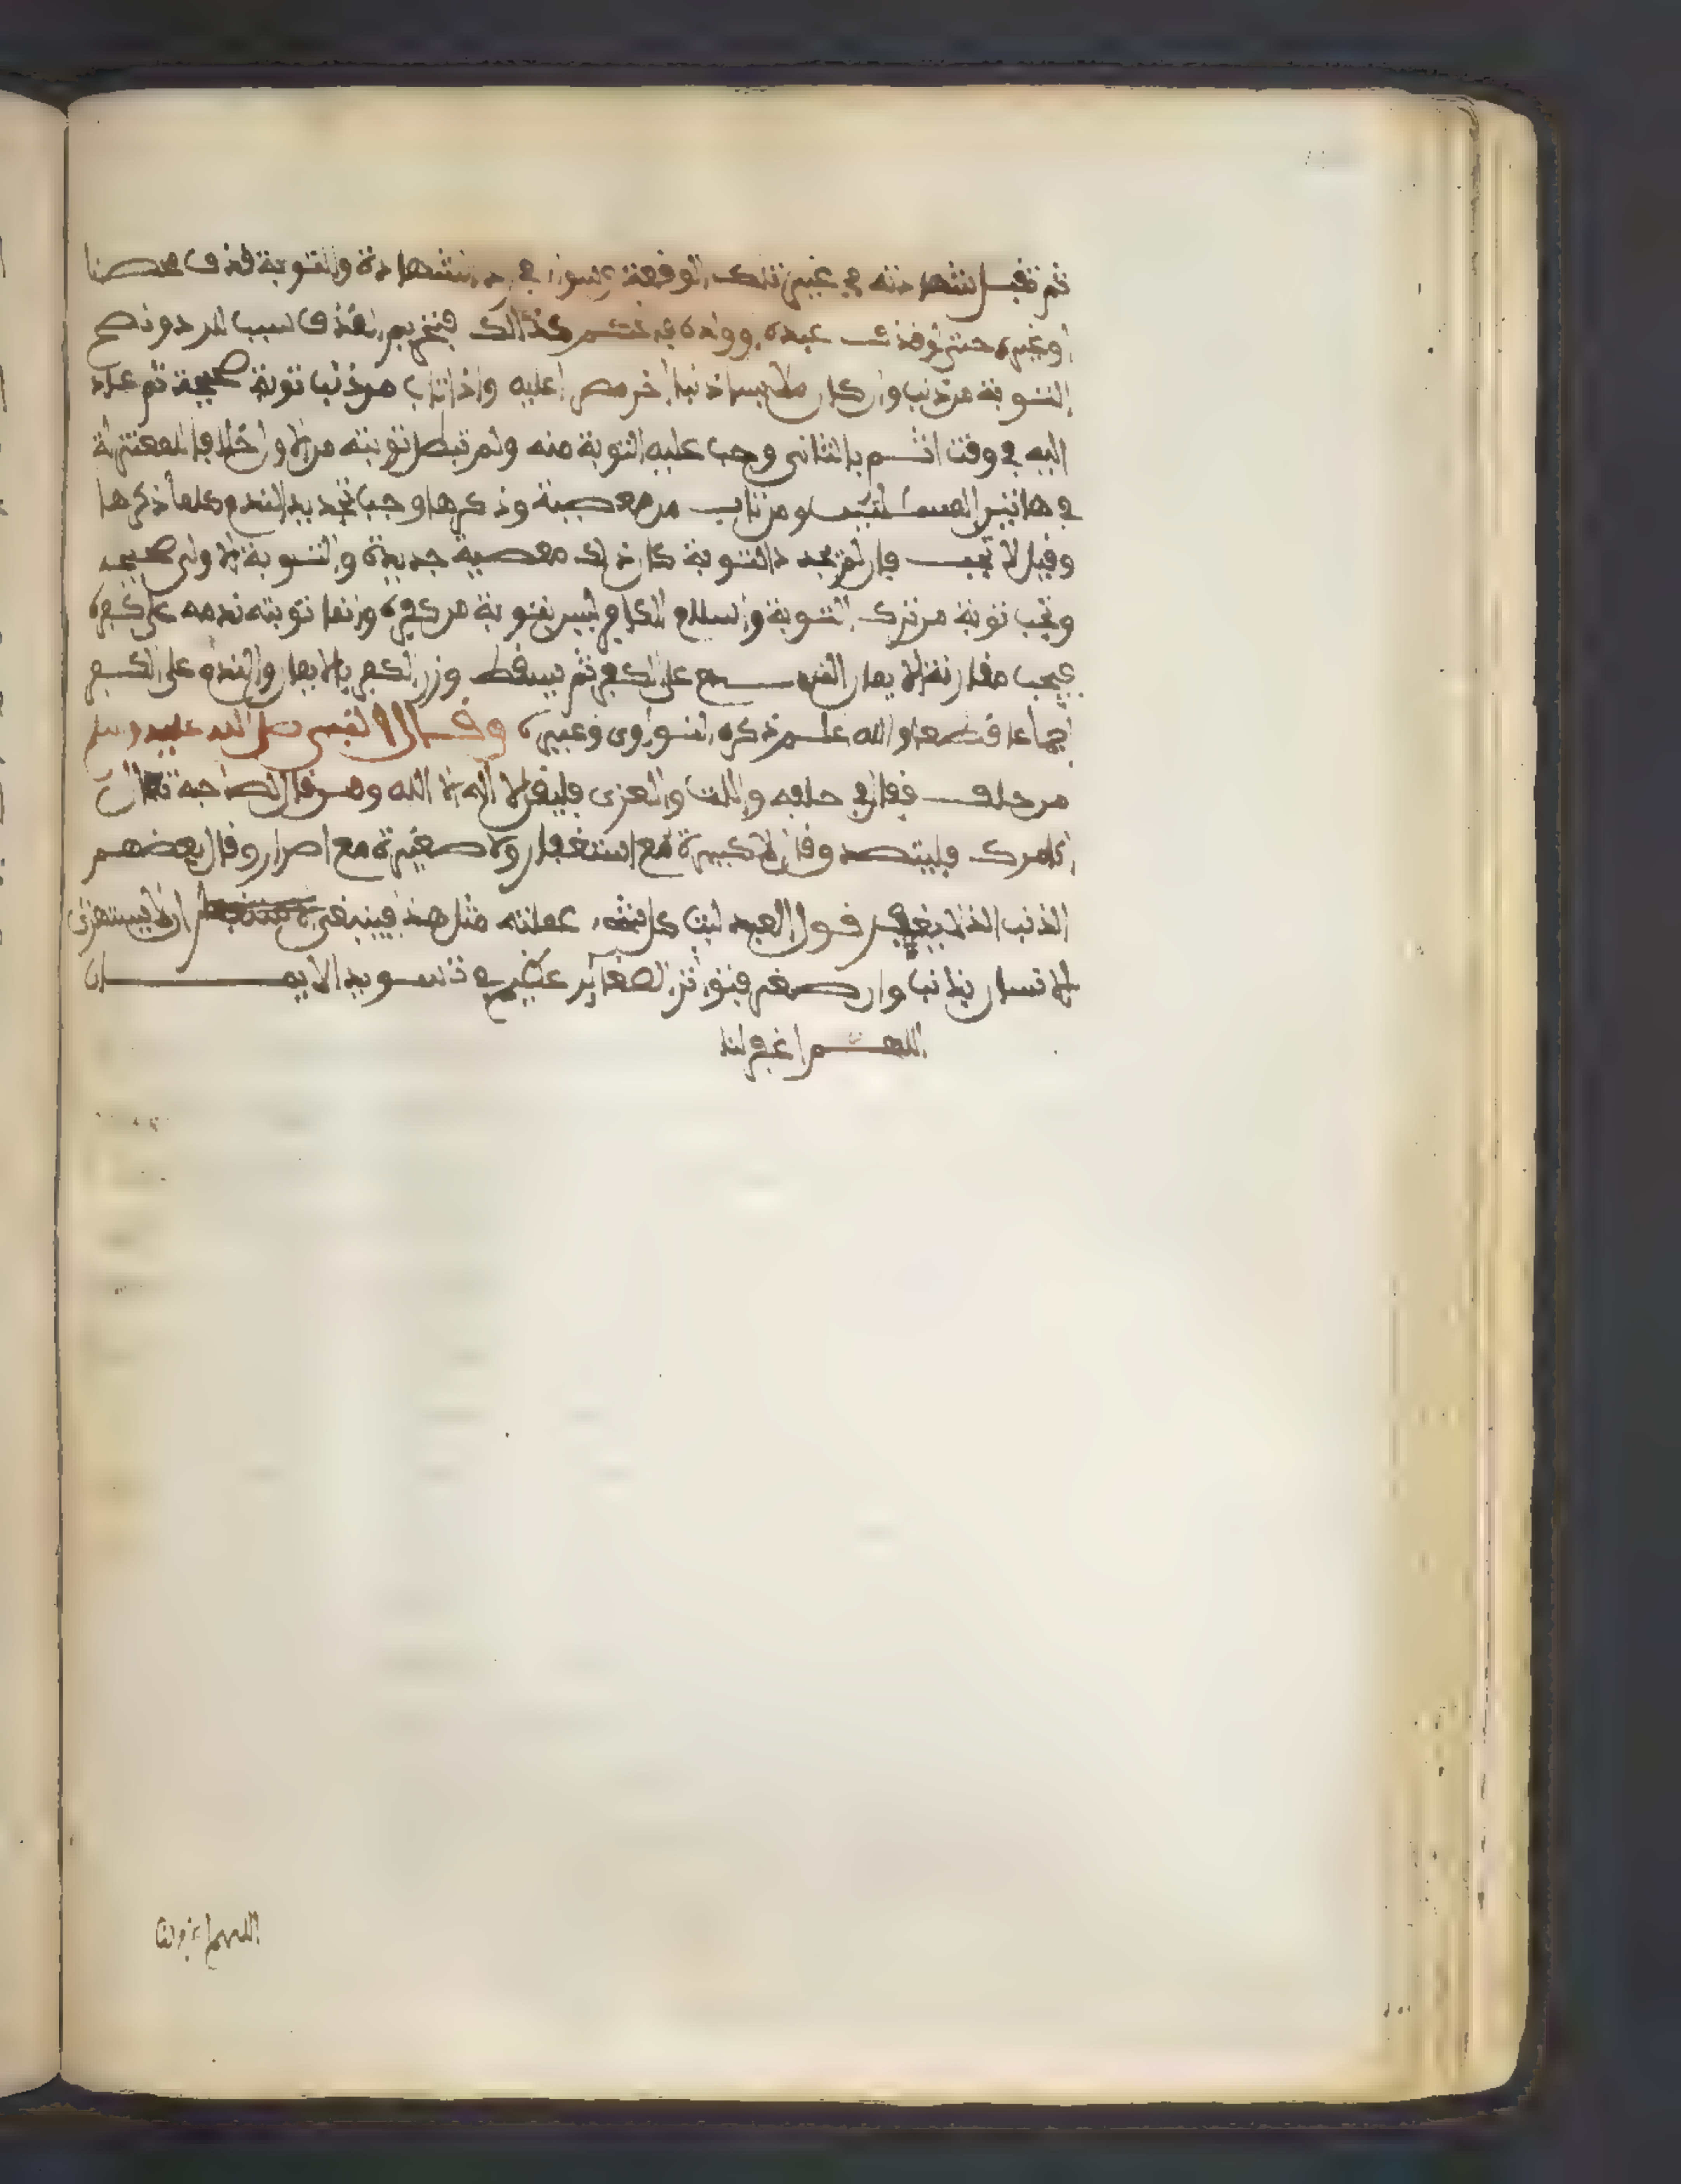 ثم تقبل شهادته في غير تلك الوقعة وسواء في رد الشهادة والتوبة قذف محصنا
او غيره حتى لو قذف عبده وولده في كذالك فتحريم القذف سبب للرد وتصح
التوبة من ذنب وان كان ملابسا ذنبا اخر مصرا عليه واذا تاب من ذنب توبة صحيحة ثم عاد
اليه في وقت اثم بالثاني وجب عليه التوبة منه ولم تبطل توبته من الاول خلافا للمعتزلة
في هاتين المسئلتين ومن تاب من معصية وذكرها وجب تجديد الندم كلما ذكرها
وقيل لا تجب فان لم يجدد التوبة كان ذلك معصية جديدة والتوبة الاولى صحيحه
وتجب توبة من ترك التوبة واسلام الكافر ليس بتوبة من كفره وانما توبته ندمه على كفره
فيجب مقارنة الايمان الندم على الكفر ثم يسقط وزر الكفر بالايمان والندم على الكفر
اجماعا قطعا والله علم ذكره النواوى وغيره وقال النبى صلى الله عليه وسلم
من حلف فقال في حلفه واللت والعزى فليقل لا اله الا الله ومن قال لصاحبه تعال
اقامرك فليتصد وقال لا كبيرة مع استغفار ولا صغيرة مع اصرار وقال بعضهم
الذنب الذى لا يغفر قول العبد ليت كل شىء عملته مثل هذا فينبغى ان لا يستهزى
الانسان بذنب وان صغر فبتواتر الصغاير عظيم في تسويد الايمـــان
اللهم اغفر لنا
اللهم اغفر لنا